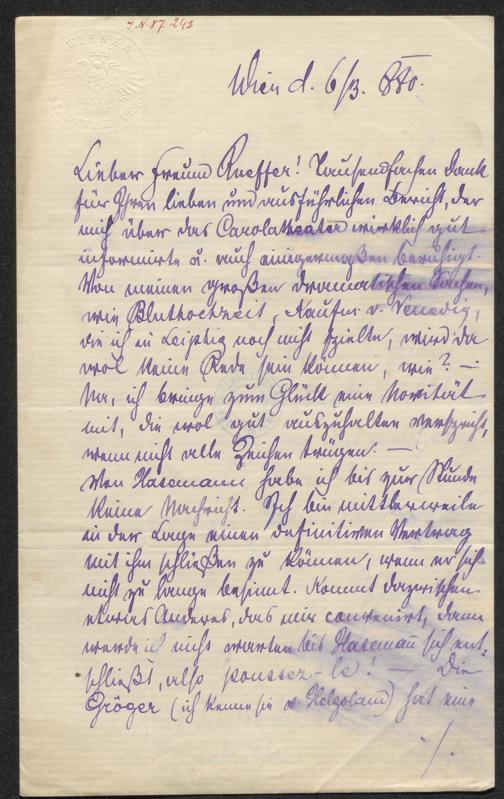 J.N. 87.243
WIENER
Wien d. 6/3. 880.
Lieber Freund Kneffer! Tausendfachen Dank
für Ihren lieben und ausführlichen Bericht, der
mich über das Carolatheater wirklich gut
informirte u. auch einigermaßen beruhigt.
Von meinen großen dramatischen Sachen,
wie Bluthochzeit, Kaufm. v. Venedig,
die ich in Leipzig noch nicht spielte, wird da
wol keine Rede sein können, wie? —
Na, ich bringe zum Glück eine Novität
mit, die wol gut auszuhalten verspricht,
wenn nicht alle Zeichen trügen. —
Von Hasemann habe ich bis zur Stunde
keine Nachricht. Ich bin mittlerweile
in der Lage einen definitiven Vertrag
mit ihm schließen zu können, wenn er sich
nicht zu lange besinnt. Kommt dazwischen
etwas Anderes, das mir convenirt, dann
werde ich nicht warten bis Hasemann sich ent-
schließt, also poussez-le! — Die
Gröger (ich kenne sie v. Helgoland) hat eine
/.